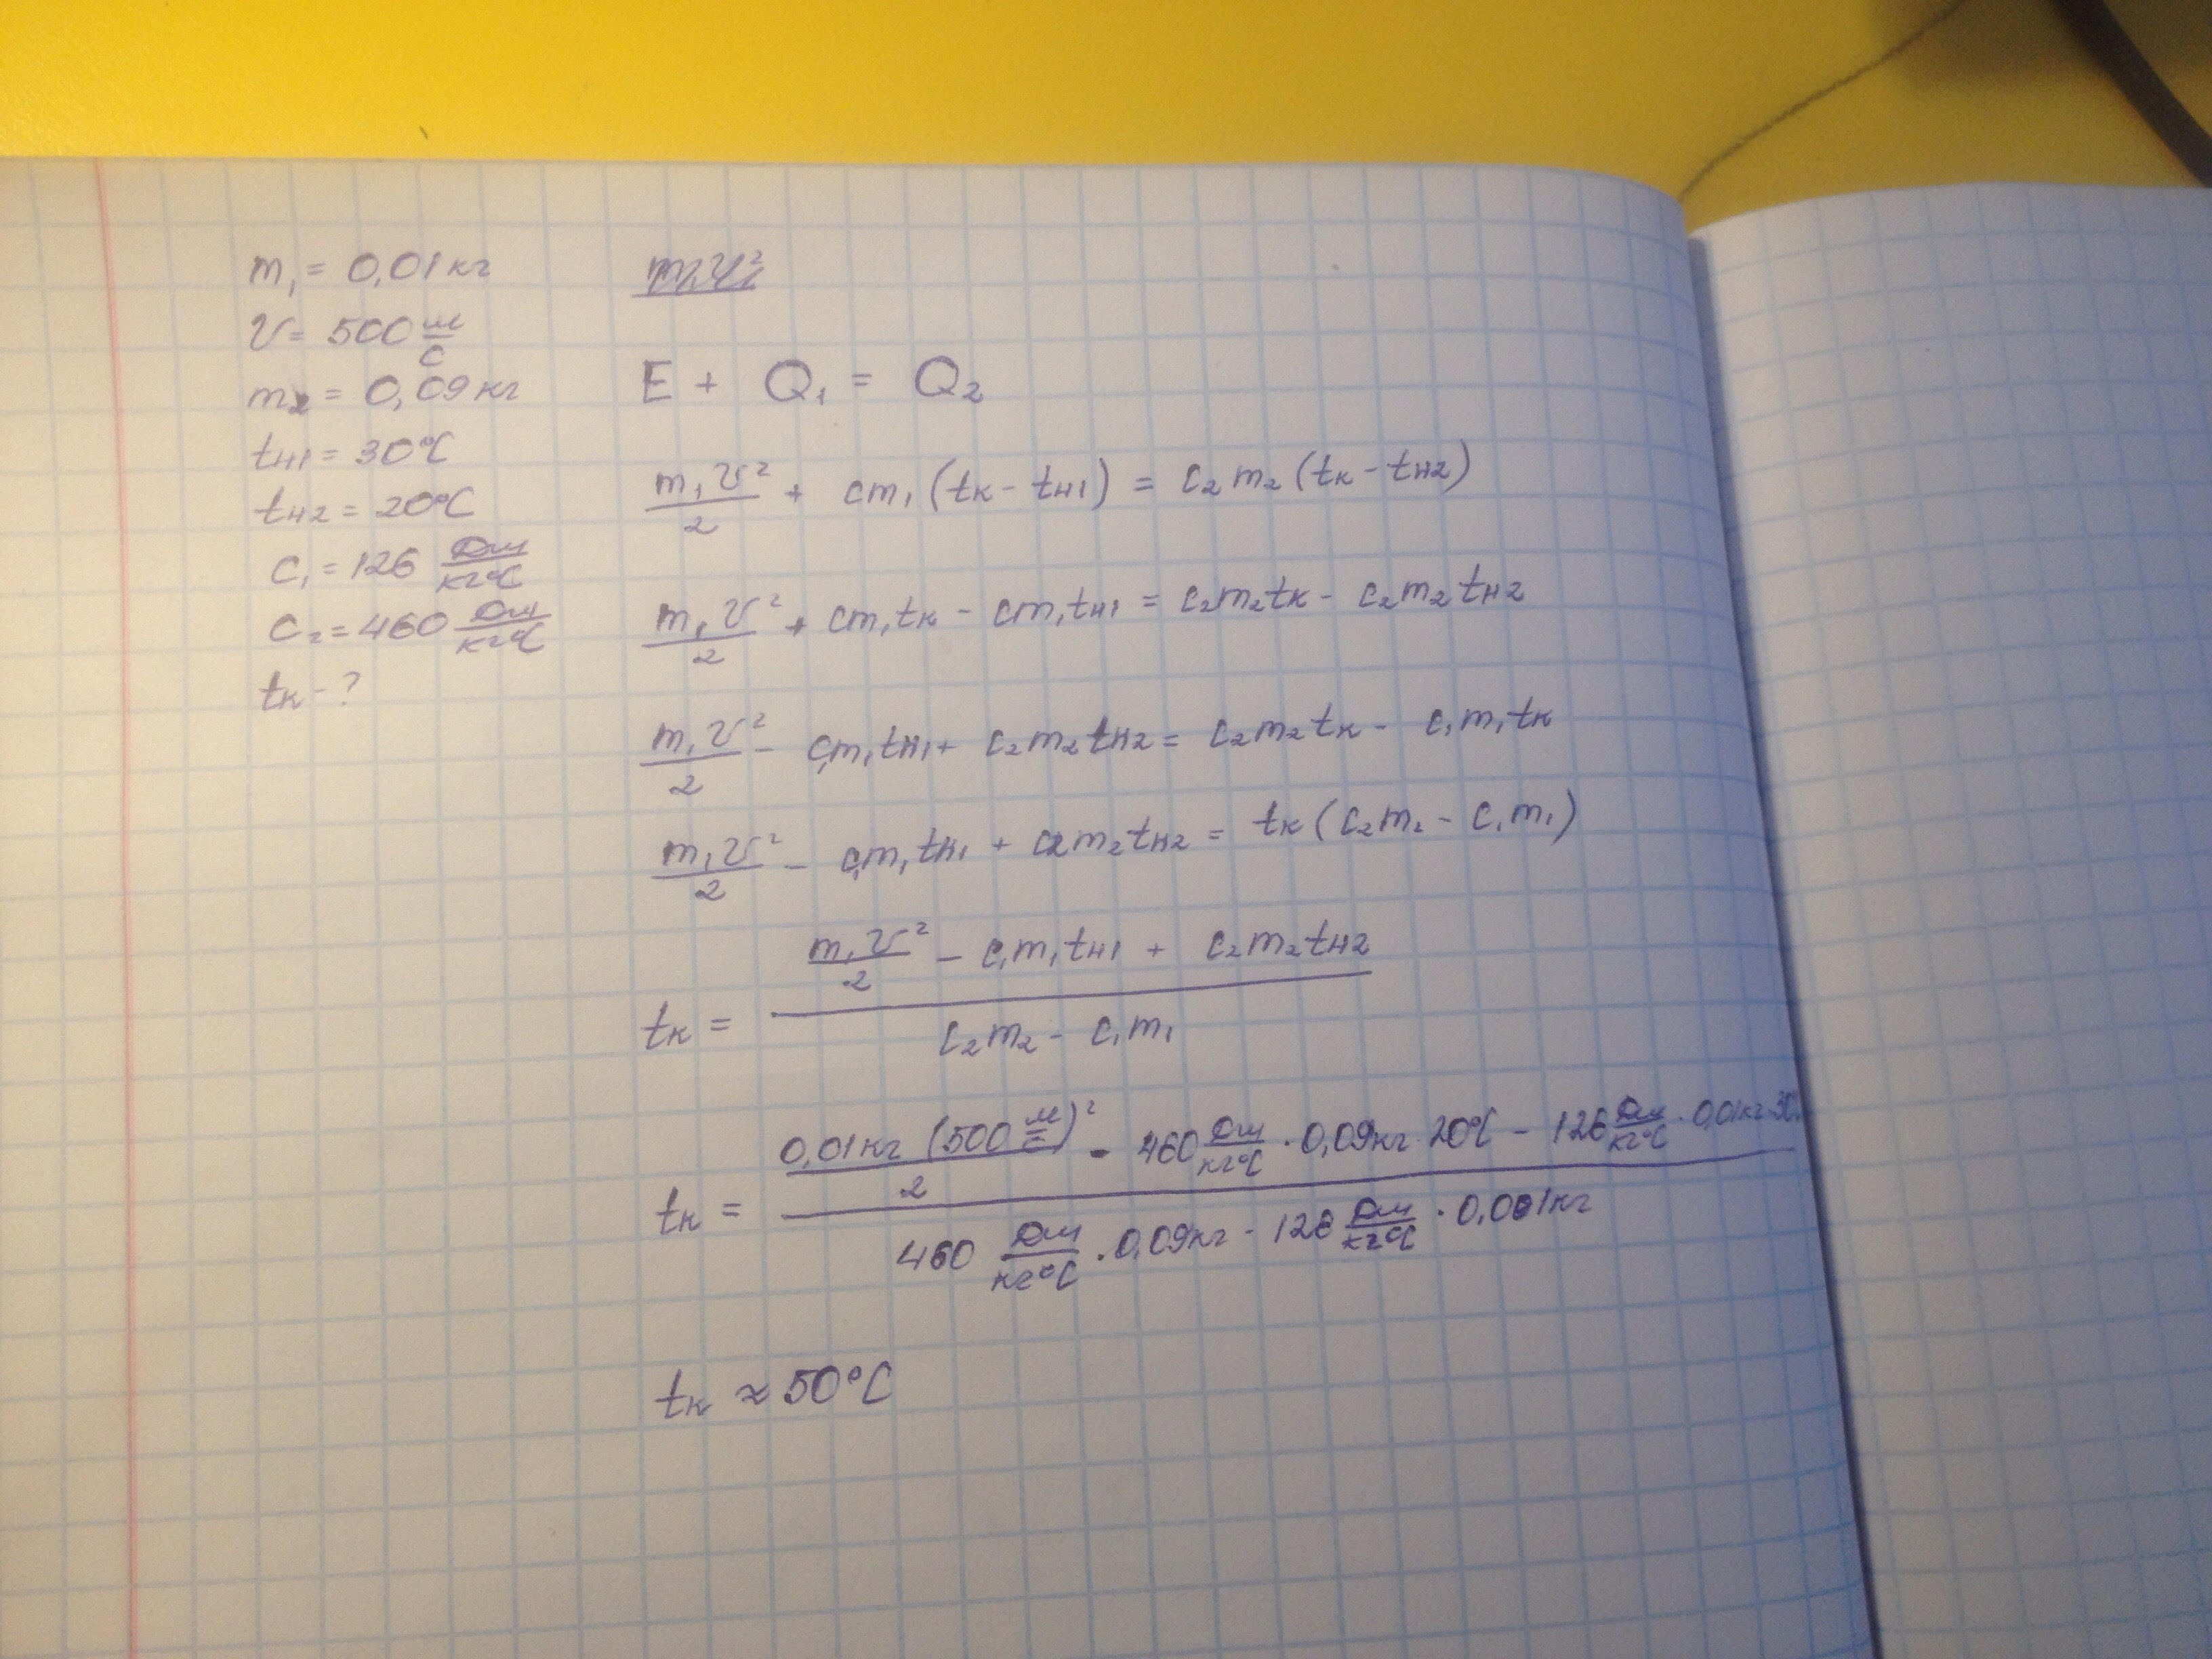 m₁ = 0,01 кг
V = 500 м/с
m₂ = 0,09 кг
tн1 = 30°C
tн2 = 20°C
C₁ = 126 Дж/кг°C
C₂ = 460 Дж/кг°C
tк - ?
E + Q₁ = Q₂
m₁V²/2 + cm₁(tк - tн1) = c₂m₂(tк - tн2)
m₁V²/2 + cm₁tк - cm₁tн1 = c₂m₂tк - c₂m₂tн2
m₁V²/2 - c₁m₁tн1 + c₂m₂tн2 = c₂m₂tк - c₁m₁tк
m₁V²/2 - c₁m₁tн1 + c₂m₂tн2 = tк(c₂m₂ - c₁m₁)
tк = (m₁V²/2 - c₁m₁tн1 + c₂m₂tн2)/(c₂m₂ - c₁m₁)
tк = (0,01кг (500 м/с)²/2 - 460 Дж/кг°C · 0,09кг · 20°C - 126 Дж/кг°C · 0,01кг · 30°C)/(460 Дж/кг°C · 0,09кг - 126 Дж/кг°C · 0,001кг)
tк ≈ 50°C